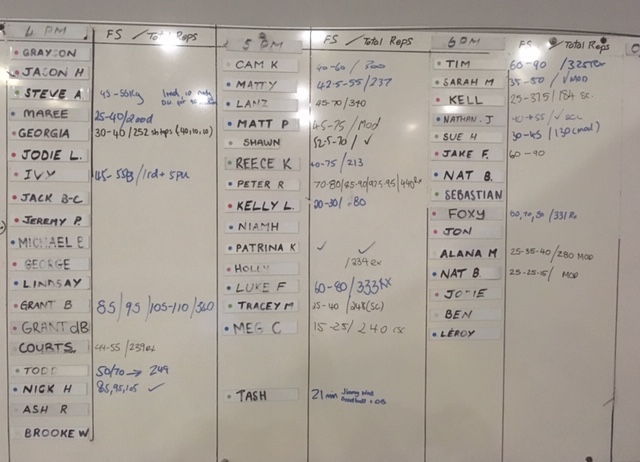 4 PM FS / Total Reps
GRAYSON
JASON H
STEVE A 45-55kg
MAREE 25-40/2 mod
GEORGIA 30-40/252 steps (40,10,10)
JODIE L.
IVY 45-55
JACK B-C
JEREMY P.
MICHAEL E
GEORGE
LINDSAY
GRANT B 85/95/105-110/360
GRANT dB
COURTS. 44-55/239rx
TODD 50/70 → 249
NICK H 85,95,105 ✓
ASH R
BROOKE W
5 PM FS / Total Reps
CAM K 40-60/300
MATTY 42.5-55/237
LANZ 45-70/340
MATT P 45-75/Mod
SHAWN 52.5-70/✓
REECE K 40-75/213
PETER R 70-80/
KELLY L. 20-30/ 80
NIAMH
PATRINA K ✓ ✓
HOLLY /239 Rx
LUKE F 60-80/333Rx
TRACEY M 25-40/248(SC)
MEG C 15-25/240 sc
TASH 21 min
6 PM FS / Total Reps
TIM 60-90/325Rx
SARAH M 35-50/✓MOD
KELL 25-37.5/184 sc.
NATHAN. J
SUE H 30-45/130(mod)
JAKE F. 60-90
NAT B.
SEBASTIAN
FOXY 60,70,80/331Rx
JON
ALANA M 25-35-40/280 MOD
NAT B 25-25-5/ MOD
JODIE
BEN
LEROY